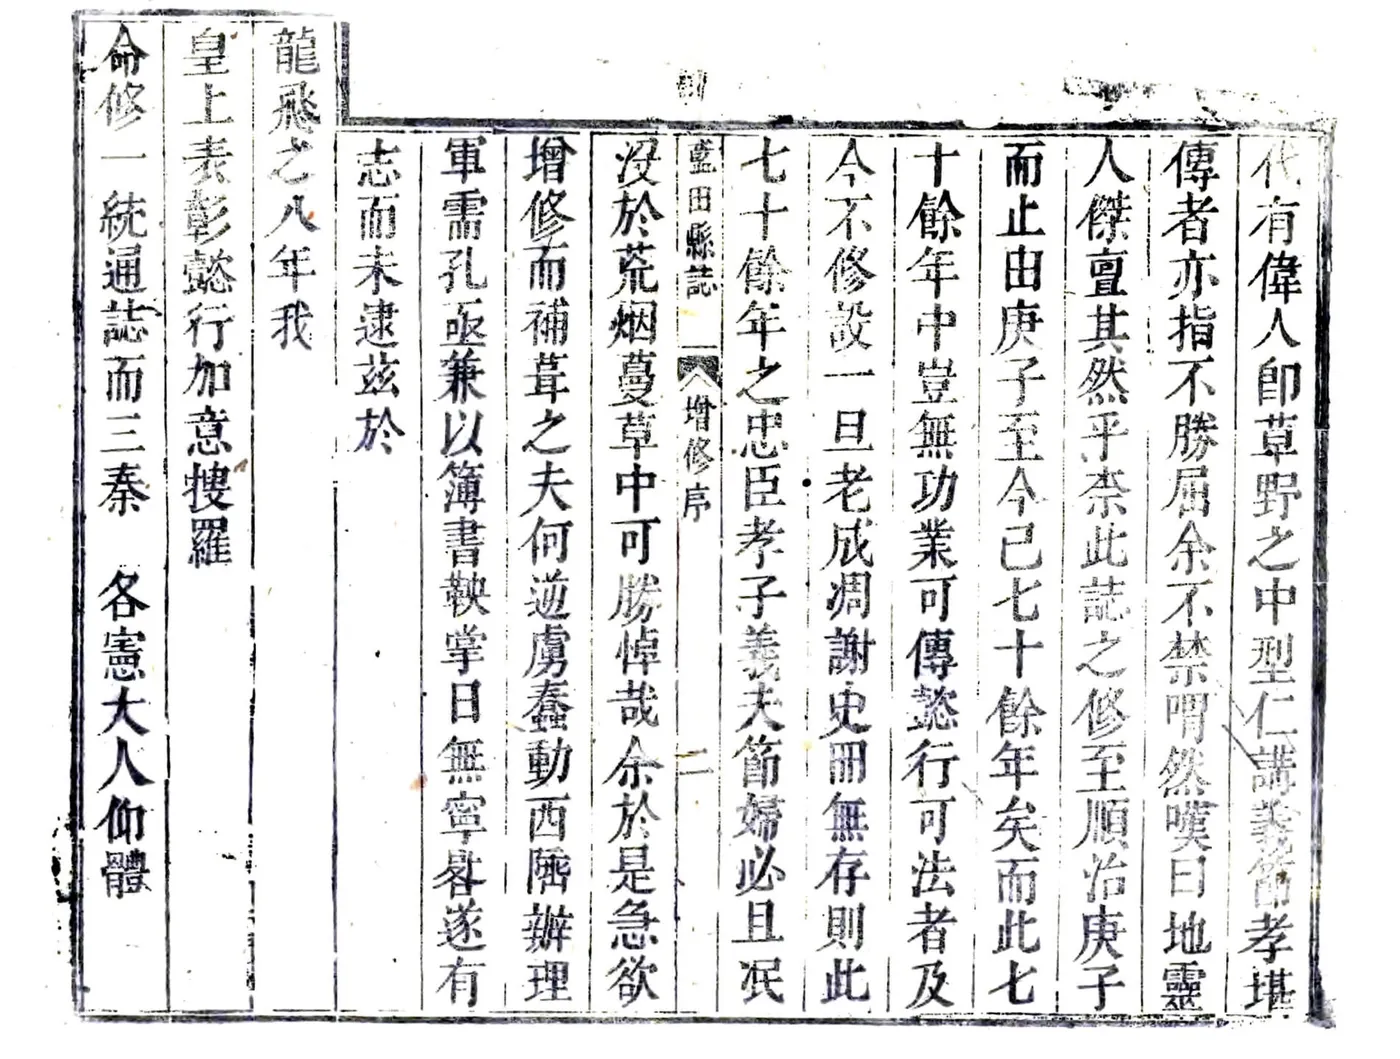 代有偉人卽草野之中型仁講義節孝堪
傳者亦指不勝屈余不禁喟然嘆曰地靈
人傑亶其然乎柰此誌之修至順治庚子
而止由庚子至今已七十餘年矣而此七
十餘年中豈無功業可傳懿行可法者及
今不修設一旦老成凋謝史冊無存則此
七十餘年之忠臣孝子義夫節婦必且泯
藍田縣誌 增修序 二
没於荒烟蔓草中可勝悼哉余於是急欲
增修而補葺之夫何逆虜蠢動西陲辦理
軍需孔亟兼以簿書鞅掌日無寧晷遂有
志而未逮兹於
龍飛之八年我
皇上表彰懿行加意搜羅
命修一統通誌而三秦 各憲大人仰體